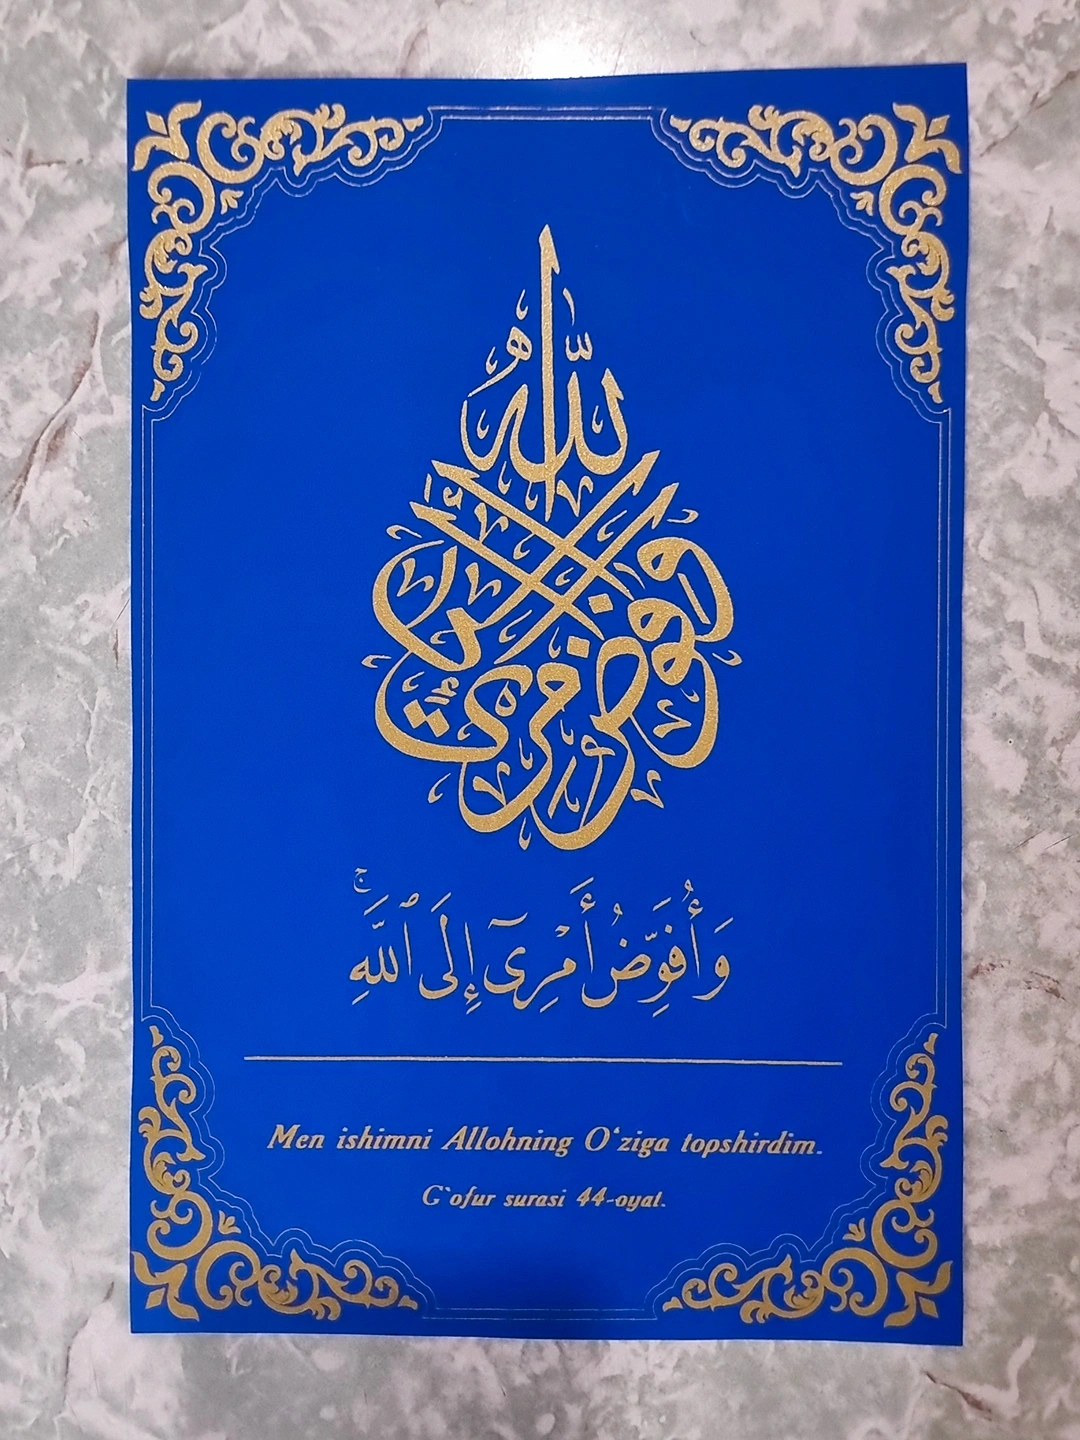 وَأُفَوِّضُ أَمْرِىٓ إِلَى ٱللَّهِ
وَأُفَوِّضُ أَمْرِىٓ إِلَى ٱللَّهِ ۚ
Men ishimni Allohning O‘ziga topshirdim.
G`ofur surasi 44-oyat.